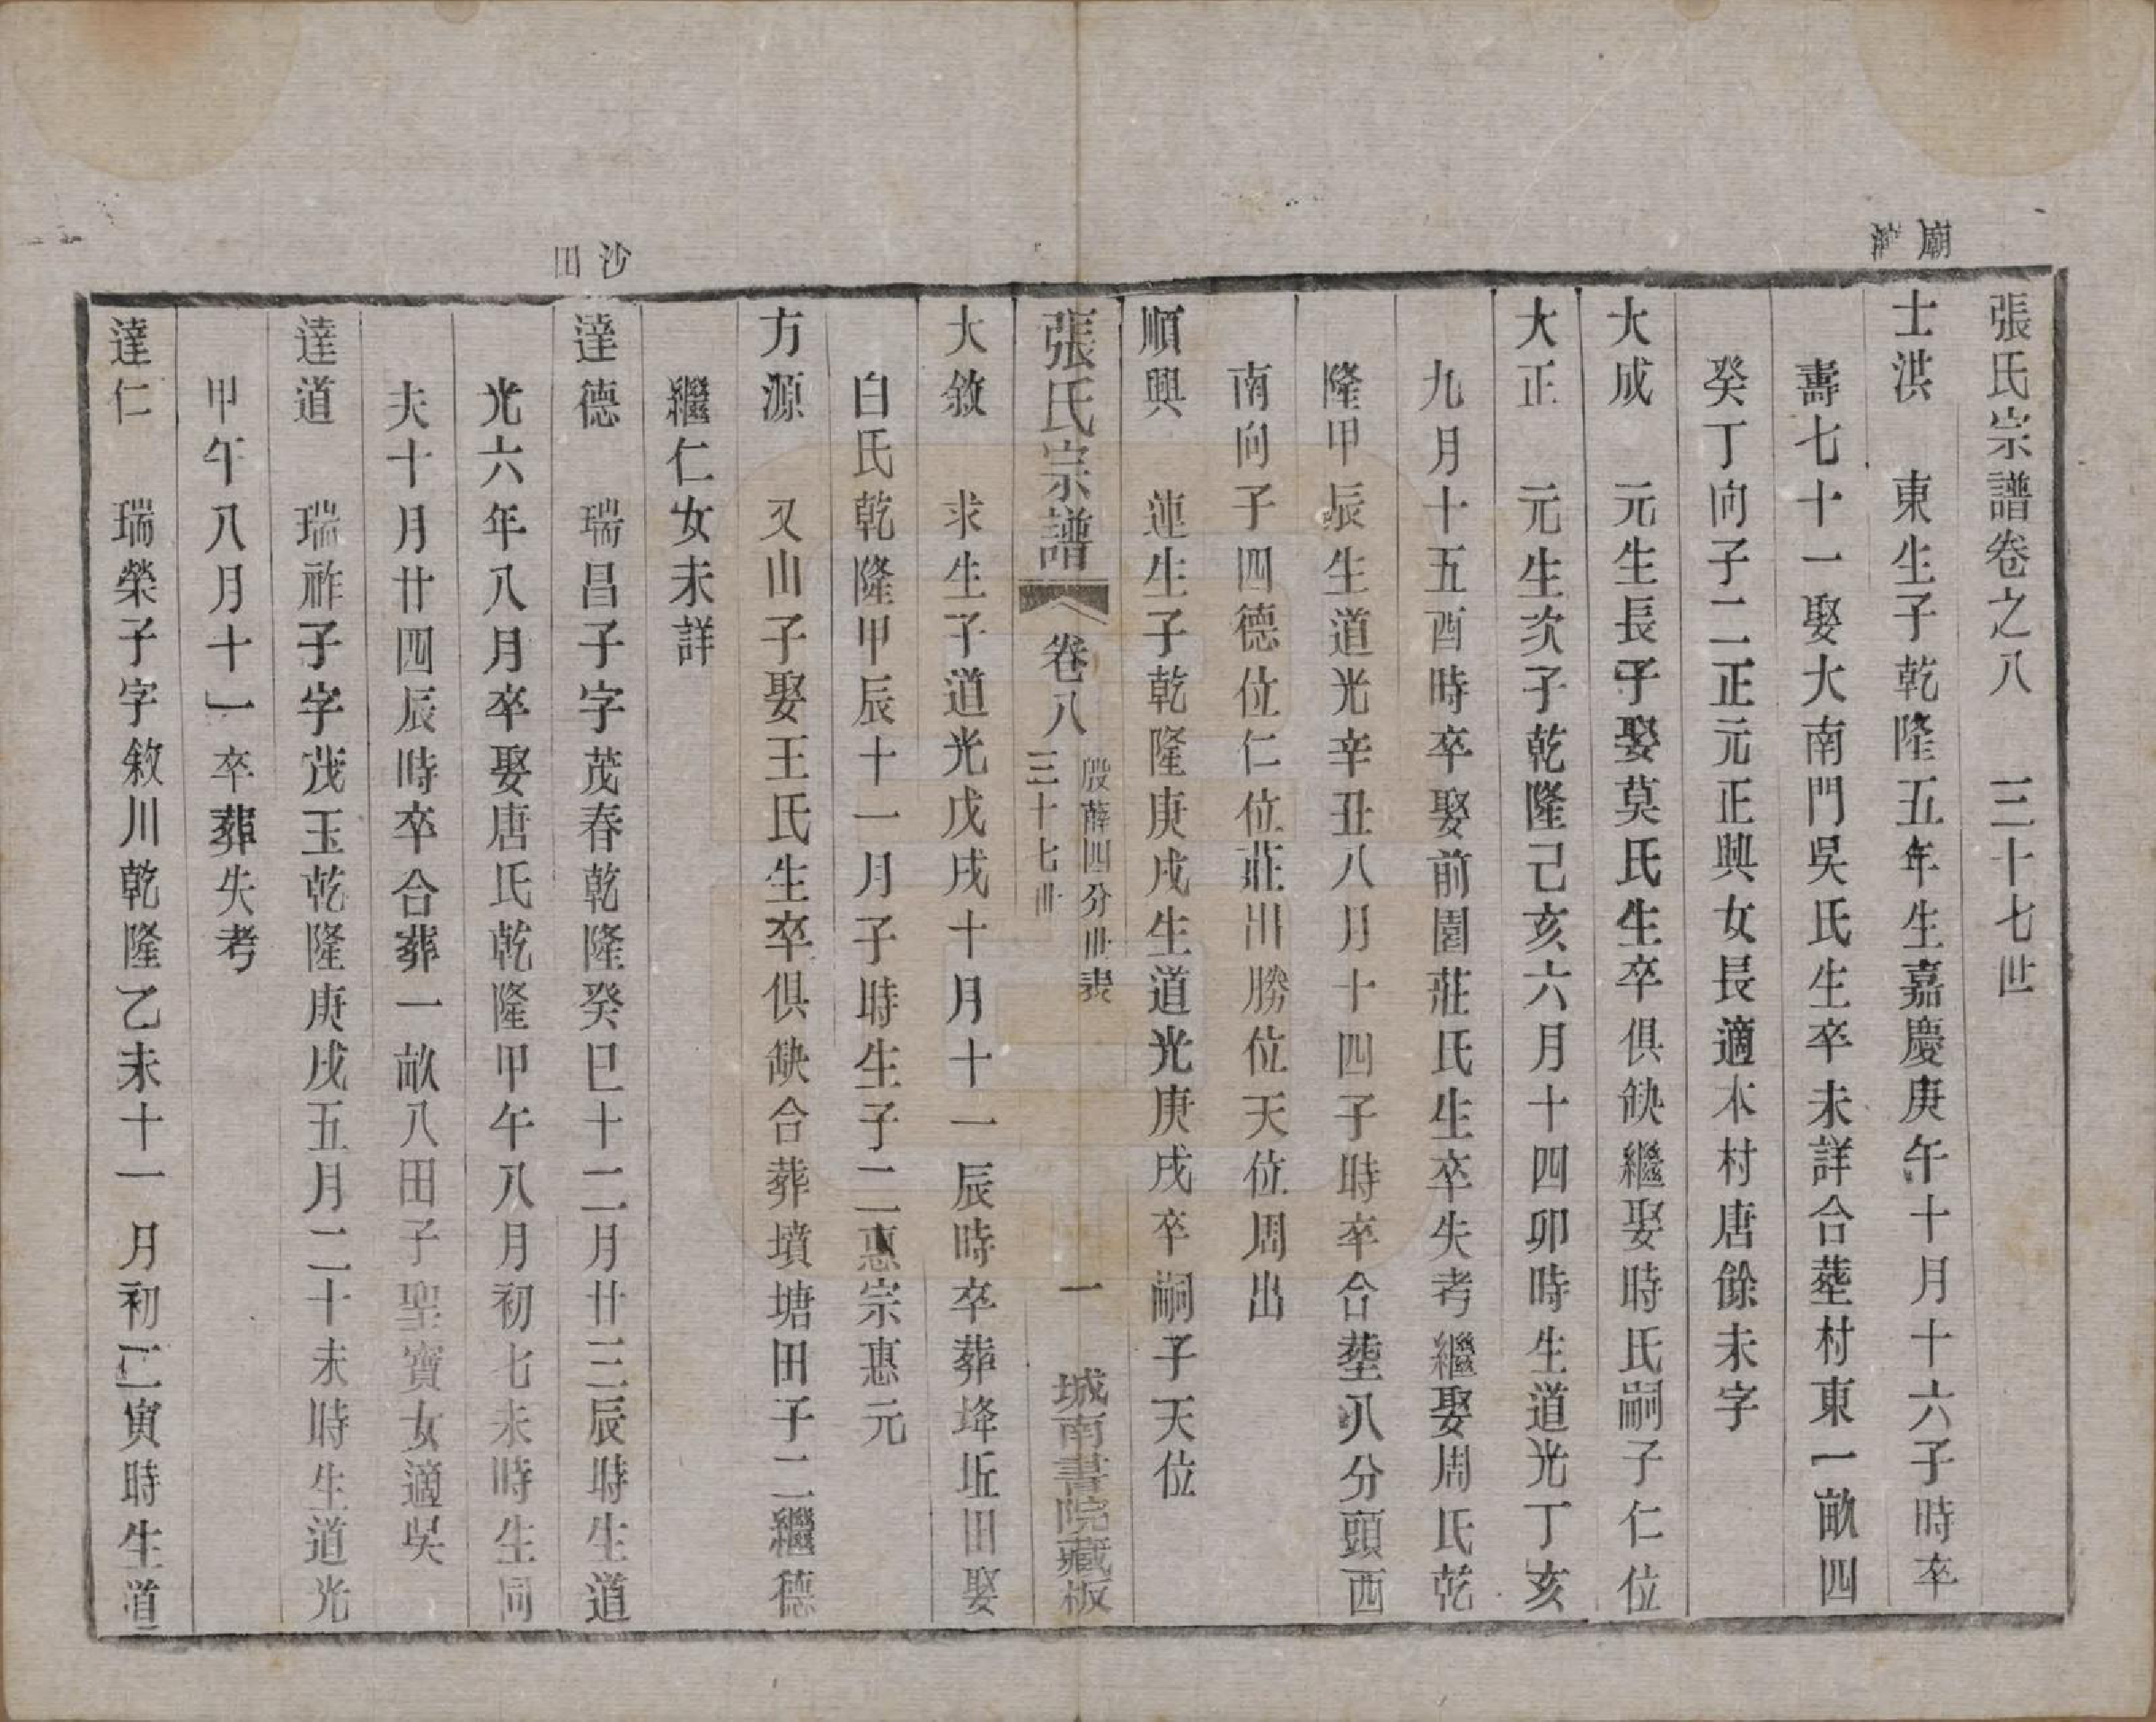 廟
張氏宗譜卷之八　三十七世
士洪　東生子乾隆五年生嘉慶庚午十月十六子時卒
壽七十一娶大南門吳氏生卒未詳合塟村東一畝四
癸丁向子二正元正興女長適本村唐餘未字
大成　元生長子娶莫氏生卒俱缺繼娶時氏嗣子仁位
大正　元生次子乾隆己亥六月十四卯時生道光丁亥
九月十五酉時卒娶前園莊氏生卒失考繼娶周氏乾
隆甲辰生道光辛丑八月十四子時卒合塟八分頭西
南向子四德位仁位莊出勝位天位周出
順興　蓮生子乾隆庚戌生道光庚戌卒嗣子天位
張氏宗譜　卷八　殷薛四分世表　三十七世　一　城南書院藏板
大敘　求生子道光戊戌十月十一辰時卒葬垰坵田娶
白氏乾隆甲辰十一月子時生子二惠宗惠元
方源　又山子娶王氏生卒俱缺合葬墳塘田子二繼德
繼仁女未詳
沙田
達德　瑞昌子字茂春乾隆癸巳十二月廿三辰時生道
光六年八月卒娶唐氏乾隆甲午八月初七未時生同
夫十月廿四辰時卒合葬一畝八田子聖寶女適吳
達道　瑞祚子字茂玉乾隆庚戌五月二十未時生道光
甲午八月十一卒葬失考
達仁　瑞榮子字敘川乾隆乙未十一月初二寅時生道